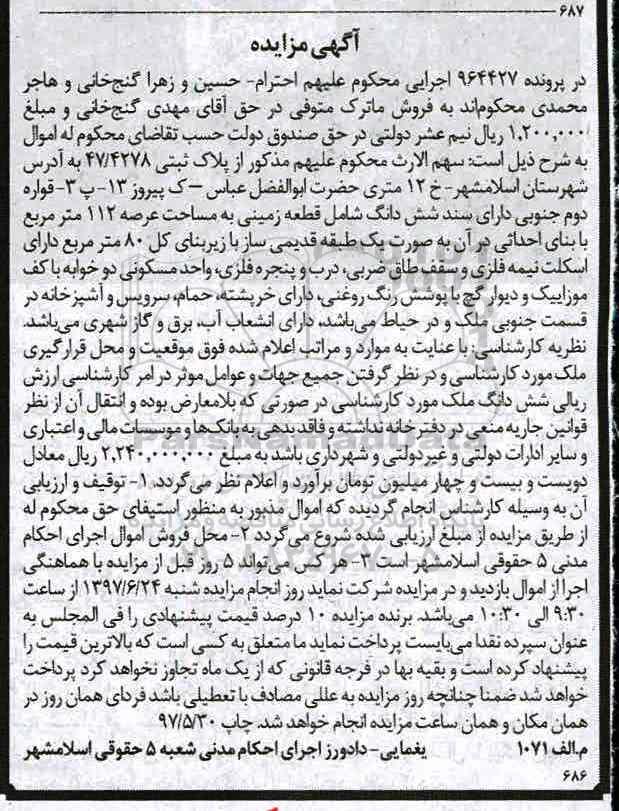 ۶۸۷
آگهی مزایده
در پرونده ۹۶۴۴۲۷ اجرایی محکوم علیهم احترام- حسین و زهرا گنج‌خانی و هاجر
محمدی محکوم‌اند به فروش ماترک متوفی در حق آقای مهدی گنج‌خانی و مبلغ
۱,۲۰۰,۰۰۰ ریال نیم عشر دولتی در حق صندوق دولت حسب تقاضای محکوم له اموال
به شرح ذیل است: سهم الارث محکوم علیهم مذکور از پلاک ثبتی ۴۷/۴۲۷۸ به آدرس
شهرستان اسلامشهر - خ ۱۲ متری حضرت ابوالفضل عباس – ک پیروز ۱۳- پ ۳- قواره
دوم جنوبی دارای سند شش دانگ شامل قطعه زمینی به مساحت عرصه ۱۱۲ متر مربع
با بنای احداثی در آن به صورت یک طبقه قدیمی ساز با زیربنای کل ۸۰ متر مربع دارای
اسکلت نیمه فلزی و سقف طاق ضربی، درب و پنجره فلزی، واحد مسکونی دو خوابه با کف
موزاییک و دیوار گچ با پوشش رنگ روغنی، دارای خرپشته، حمام، سرویس و آشپزخانه در
قسمت جنوبی ملک و در حیاط می‌باشد، دارای انشعاب آب، برق و گاز شهری می‌باشد.
نظریه کارشناسی: با عنایت به موارد و مراتب اعلام شده فوق موقعیت و محل قرارگیری
ملک مورد کارشناسی و در نظر گرفتن جمیع جهات و عوامل موثر در امر کارشناسی ارزش
ریالی شش دانگ ملک مورد کارشناسی در صورتی که بلامعارض بوده و انتقال آن از نظر
قوانین جاریه منعی در دفترخانه نداشته و فاقد بدهی به بانک‌ها و موسسات مالی و اعتباری
و سایر ادارات دولتی و غیردولتی و شهرداری باشد به مبلغ ۲,۲۴۰,۰۰۰,۰۰۰ ریال معادل
دویست و بیست و چهار میلیون تومان برآورد و اعلام نظر می‌گردد. ۱- توقیف و ارزیابی
آن به وسیله کارشناس انجام گردیده که اموال مذبور به منظور استیفای حق محکوم له
از طریق مزایده از مبلغ ارزیابی شده شروع می‌گردد ۲- محل فروش اموال اجرای احکام
مدنی ۵ حقوقی اسلامشهر است ۳- هر کس می‌تواند ۵ روز قبل از مزایده با هماهنگی
اجرا از اموال بازدید و در مزایده شرکت نماید روز انجام مزایده شنبه ۱۳۹۷/۶/۲۴ از ساعت
۹:۳۰ الی ۱۰:۳۰ می‌باشد. برنده مزایده ۱۰ درصد قیمت پیشنهادی را فی المجلس به
عنوان سپرده نقدا می‌بایست پرداخت نماید ما متعلق به کسی است که بالاترین قیمت را
پیشنهاد کرده است و بقیه بها در فرجه قانونی که از یک ماه تجاوز نخواهد کرد پرداخت
خواهد شد ضمنا چنانچه روز مزایده به عللی مصادف با تعطیلی باشد فردای همان روز در
همان مکان و همان ساعت مزایده انجام خواهد شد. چاپ ۹۷/۵/۳۰
م.الف ۱۰۷۱ یغمایی- دادورز اجرای احکام مدنی شعبه ۵ حقوقی اسلامشهر
۶۸۶